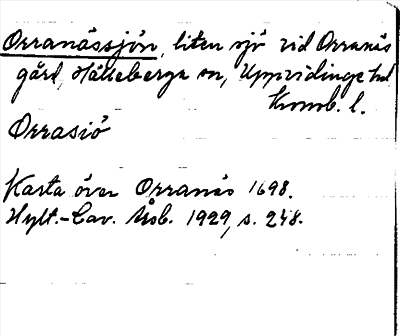 Orranässjön, liten sjö vid Orranäs
gård, Hälleberga sn, Uppvidinge hd
Kronob. l.
Orrasiö
Karta över Orranäs 1698.
Hylt.-Cav. Årsb. 1929, s. 248.